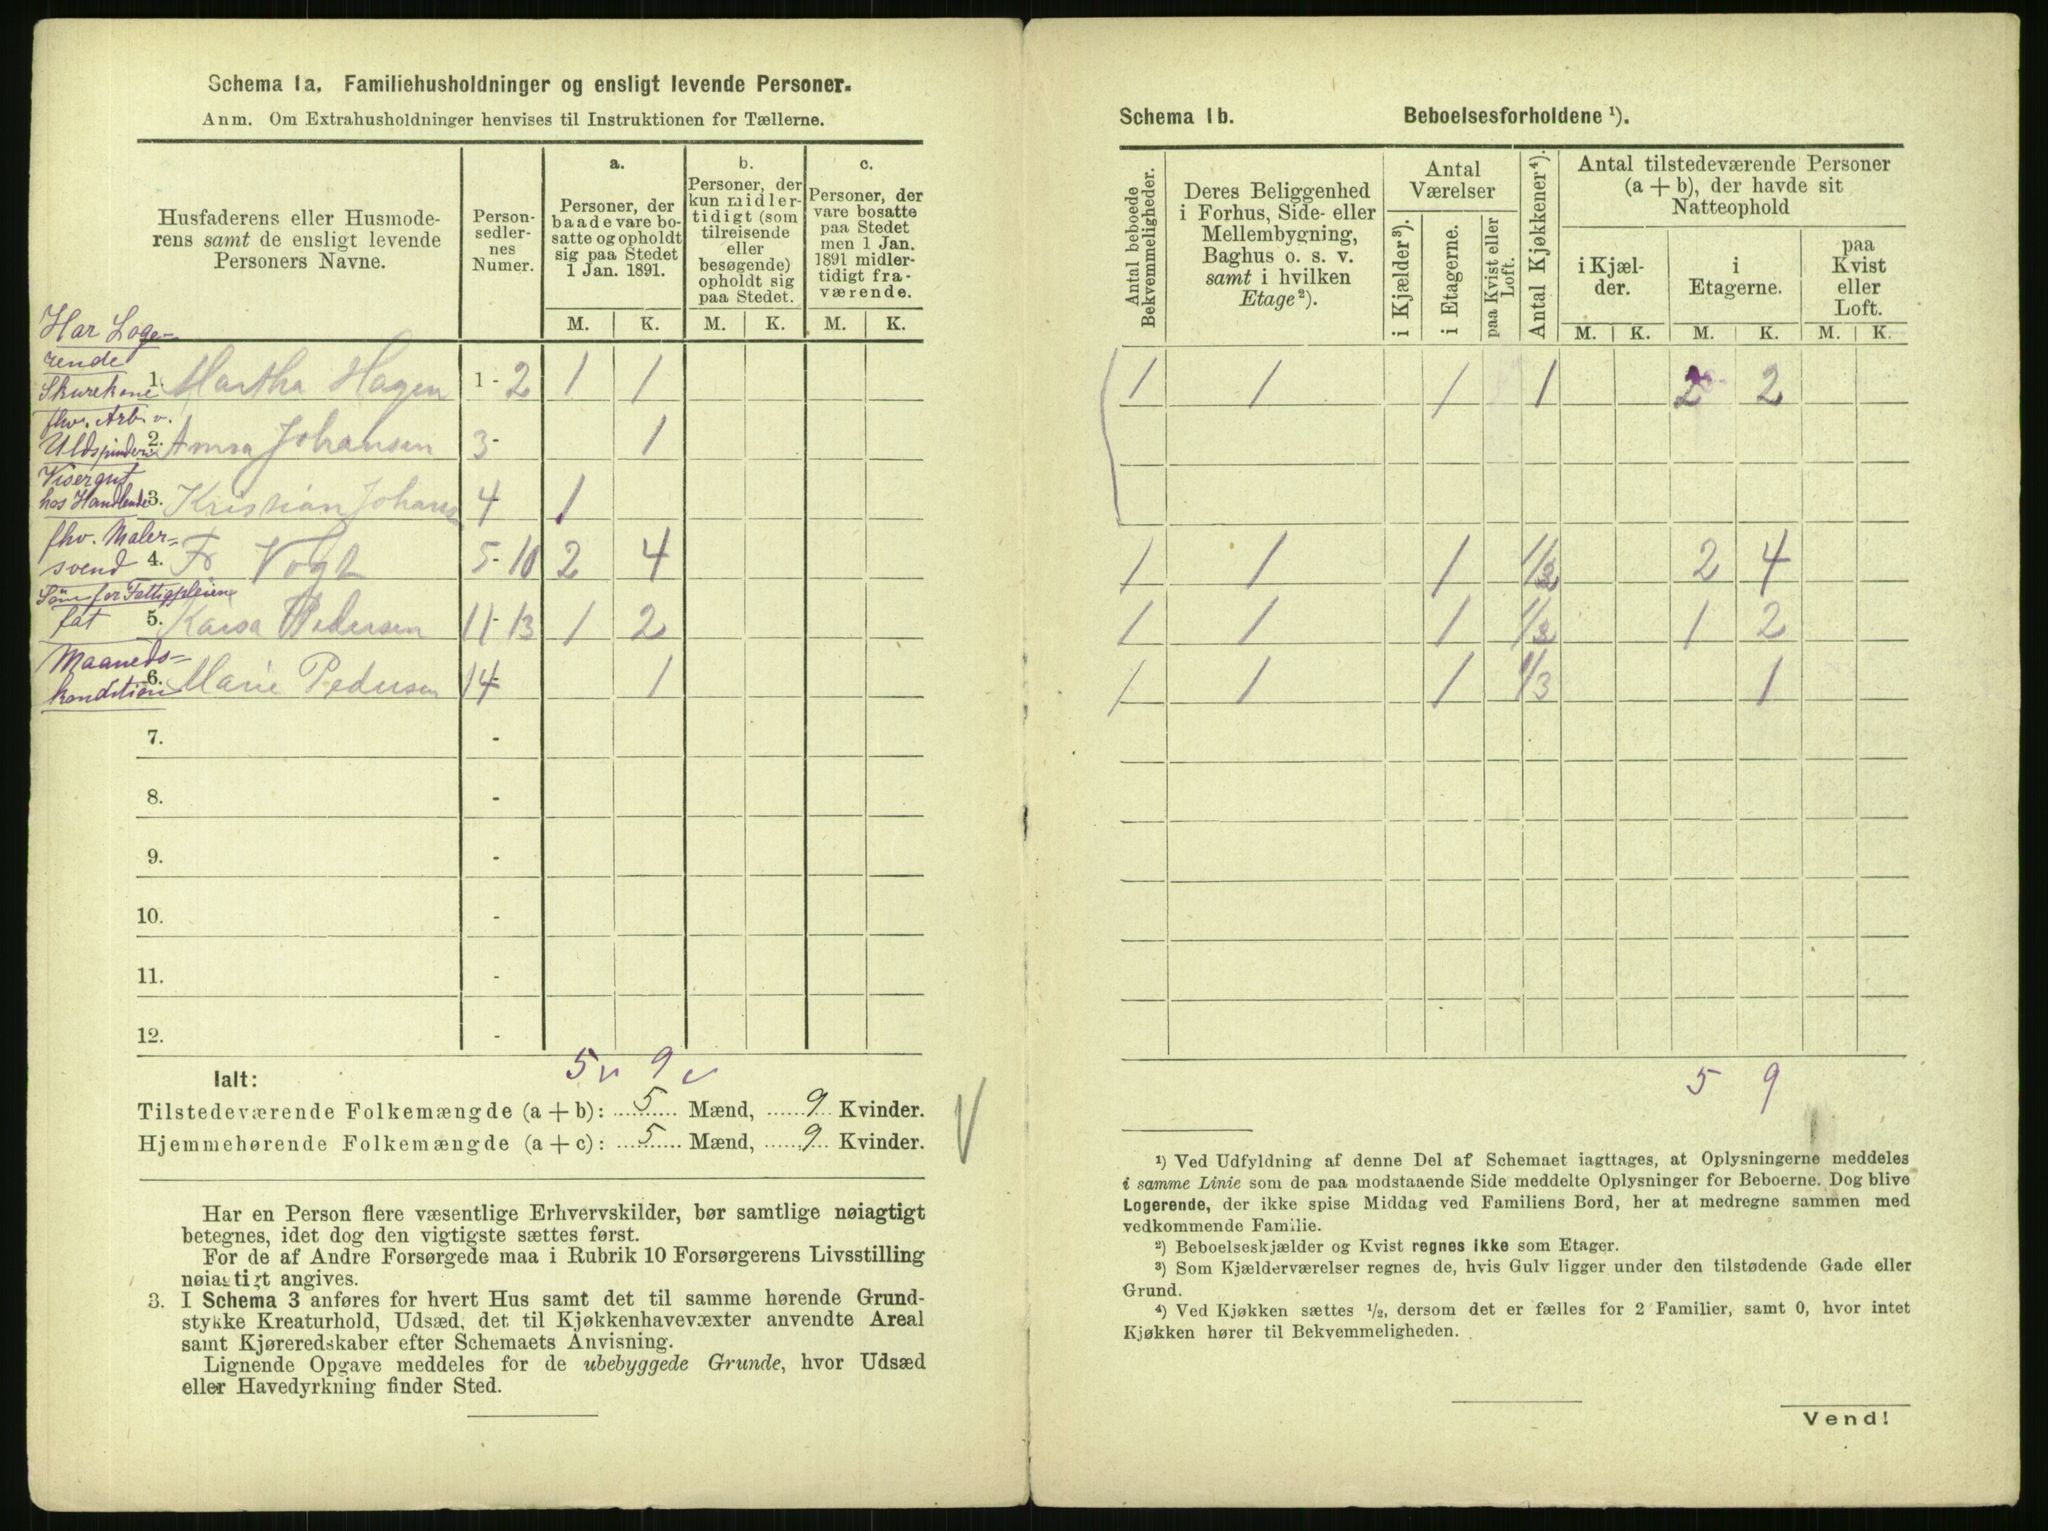 Schema 1a. Familiehusholdninger og ensligt levende Personer.
Anm. Om Extrahusholdninger henvises til Instruktionen for Tællerne.
Husfaderens eller Husmode-
rens samt de ensligt levende
Personers Navne.
Person-
sedler-
nes
Numer.
a.
Personer, der
baade vare bo-
satte og opholdt
sig paa Stedet
1 Jan. 1891.
b.
Personer, der
kun midler-
tidigt (som
tilreisende
eller
besøgende)
opholdt sig
paa Stedet.
c.
Personer, der
vare bosatte
paa Stedet
men 1 Jan.
1891 midler-
tidigt fra-
værende.
M. K. M. K. M. K.
Har Loge-
rende
Skurekone 1. Martha Hagen 1 - 2 1 1
fhv. Arb. v.
Uldspinderi 2. Anna Johansen 3 - 1
Visergut
hos Handlende 3. Kristian Johans 4 - 1
fhv. Maler-
svend 4. Fr Vogt 5 - 10 2 4
Søm for Fattigpleien
fat 5. Karsa Pedersen 11 - 13 1 2
Maaneds-
kondition 6. Marie Pedersen 14 - 1
7. -
8. -
9. -
10. -
11. -
12. -
5 9
Ialt:
Tilstedeværende Folkemængde (a + b): 5 Mænd, 9 Kvinder.
Hjemmehørende Folkemængde (a + c): 5 Mænd, 9 Kvinder.
Har en Person flere væsentlige Erhvervskilder, bør samtlige nøiagtigt
betegnes, idet dog den vigtigste sættes først.
For de af Andre Forsørgede maa i Rubrik 10 Forsørgerens Livsstilling
nøiagtigt angives.
3. I Schema 3 anføres for hvert Hus samt det til samme hørende Grund-
stykke Kreaturhold, Udsæd, det til Kjøkkenhavevæxter anvendte Areal
samt Kjøreredskaber efter Schemaets Anvisning.
Lignende Opgave meddeles for de ubebyggede Grunde, hvor Udsæd
eller Havedyrkning finder Sted.
Schema 1b. Beboelsesforholdene ¹).
Antal beboede
Bekvemmeligheder.
Deres Beliggenhed
i Forhus, Side- eller
Mellembygning,
Baghus o. s. v.
samt i hvilken
Etage ²).
Antal
Værelser
i Kjælder ³).
i Etagerne.
paa Kvist eller
Loft.
Antal Kjøkkener ⁴).
Antal tilstedeværende Personer
(a + b), der havde sit
Natteophold
i Kjæl-
der.
i
Etagerne.
paa
Kvist
eller
Loft.
M. K. M. K. M. K.
1 1 1 1 2 2
1 1 1 1/3 2 4
1 1 1 1/3 1 2
1 1 1 1/3 1
5 9
¹) Ved Udfyldning af denne Del af Schemaet iagttages, at Oplysningerne meddeles
i samme Linie som de paa modstaaende Side meddelte Oplysninger for Beboerne. Dog blive
Logerende, der ikke spise Middag ved Familiens Bord, her at medregne sammen med
vedkommende Familie.
²) Beboelseskjælder og Kvist regnes ikke som Etager.
³) Som Kjælderværelser regnes de, hvis Gulv ligger under den tilstødende Gade eller
Grund.
⁴) Ved Kjøkken sættes ½, dersom det er fælles for 2 Familier, samt 0, hvor intet
Kjøkken hører til Bekvemmeligheden.
Vend!